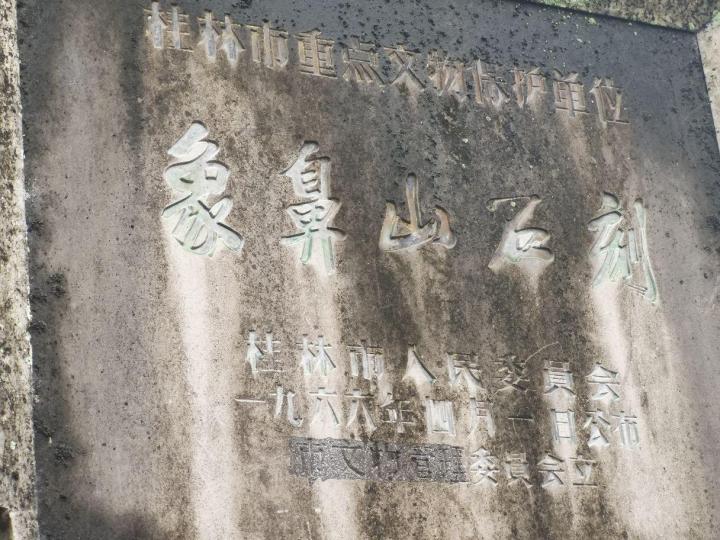 桂林市重点文物保护单位
象鼻山石刻
桂林市人民委員会
一九六六年四月一日公布
市文物管理委員会立